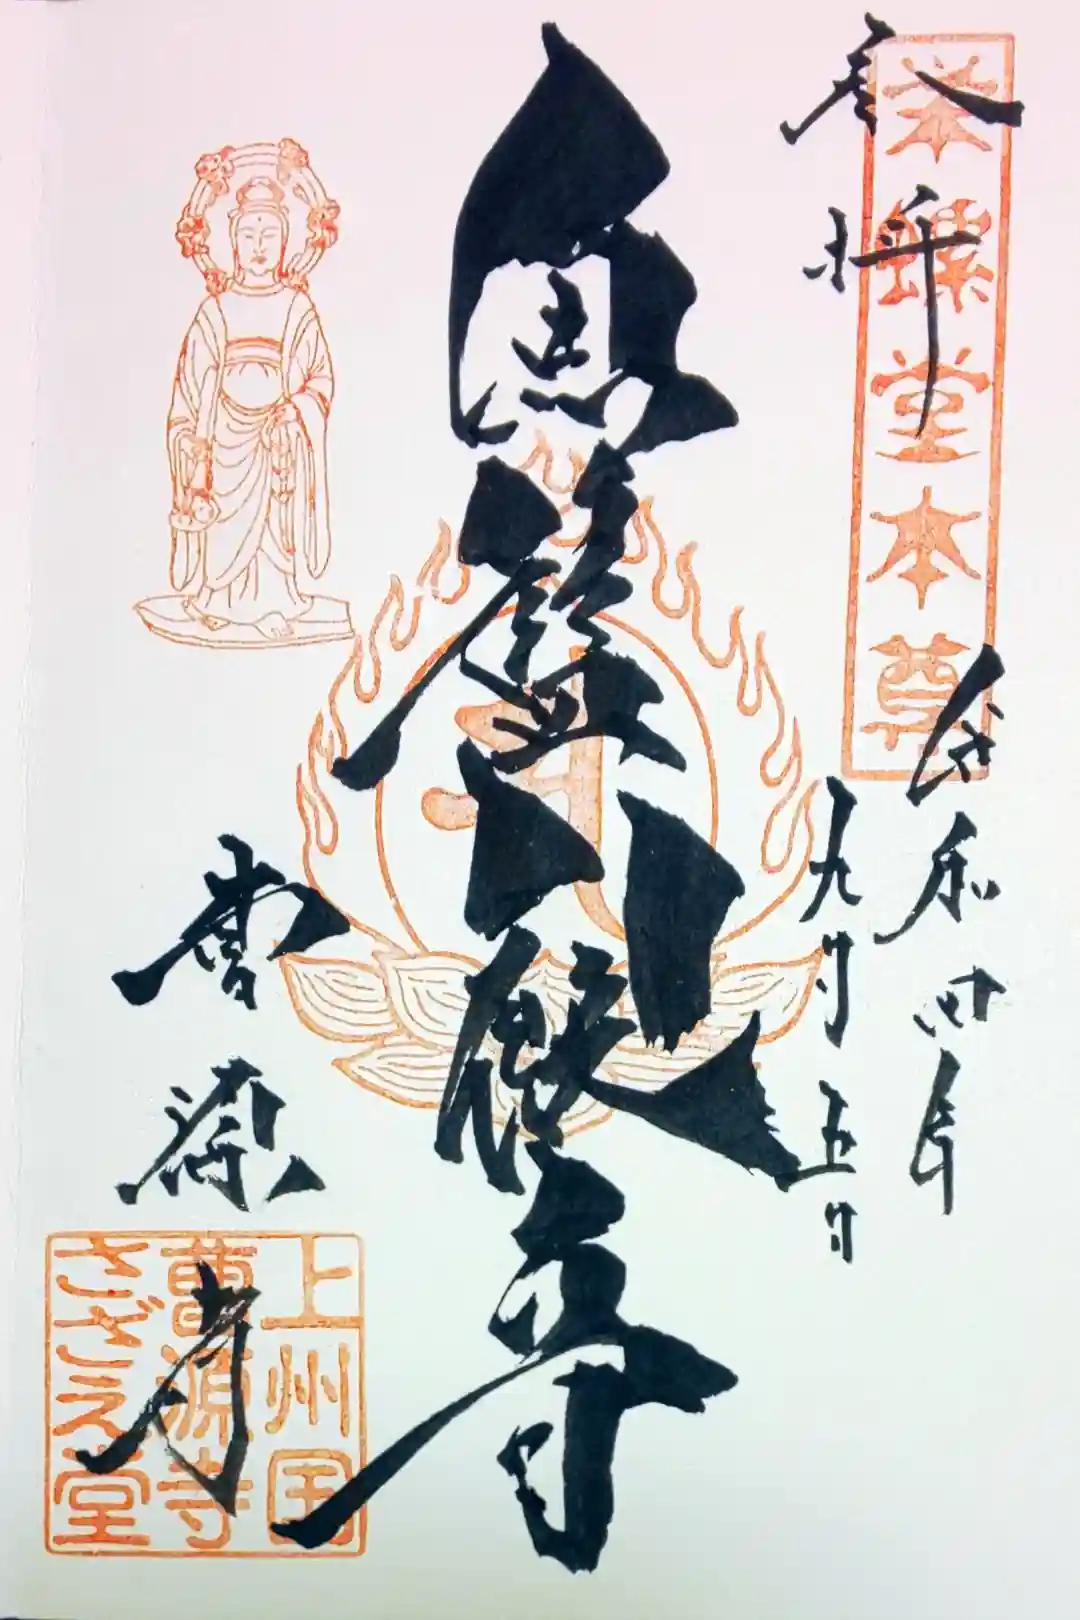 栄螺堂本尊
奉拝
令和四年
九月五日
魚籃観音
曹源寺
上州国
曹源寺
さざえ堂